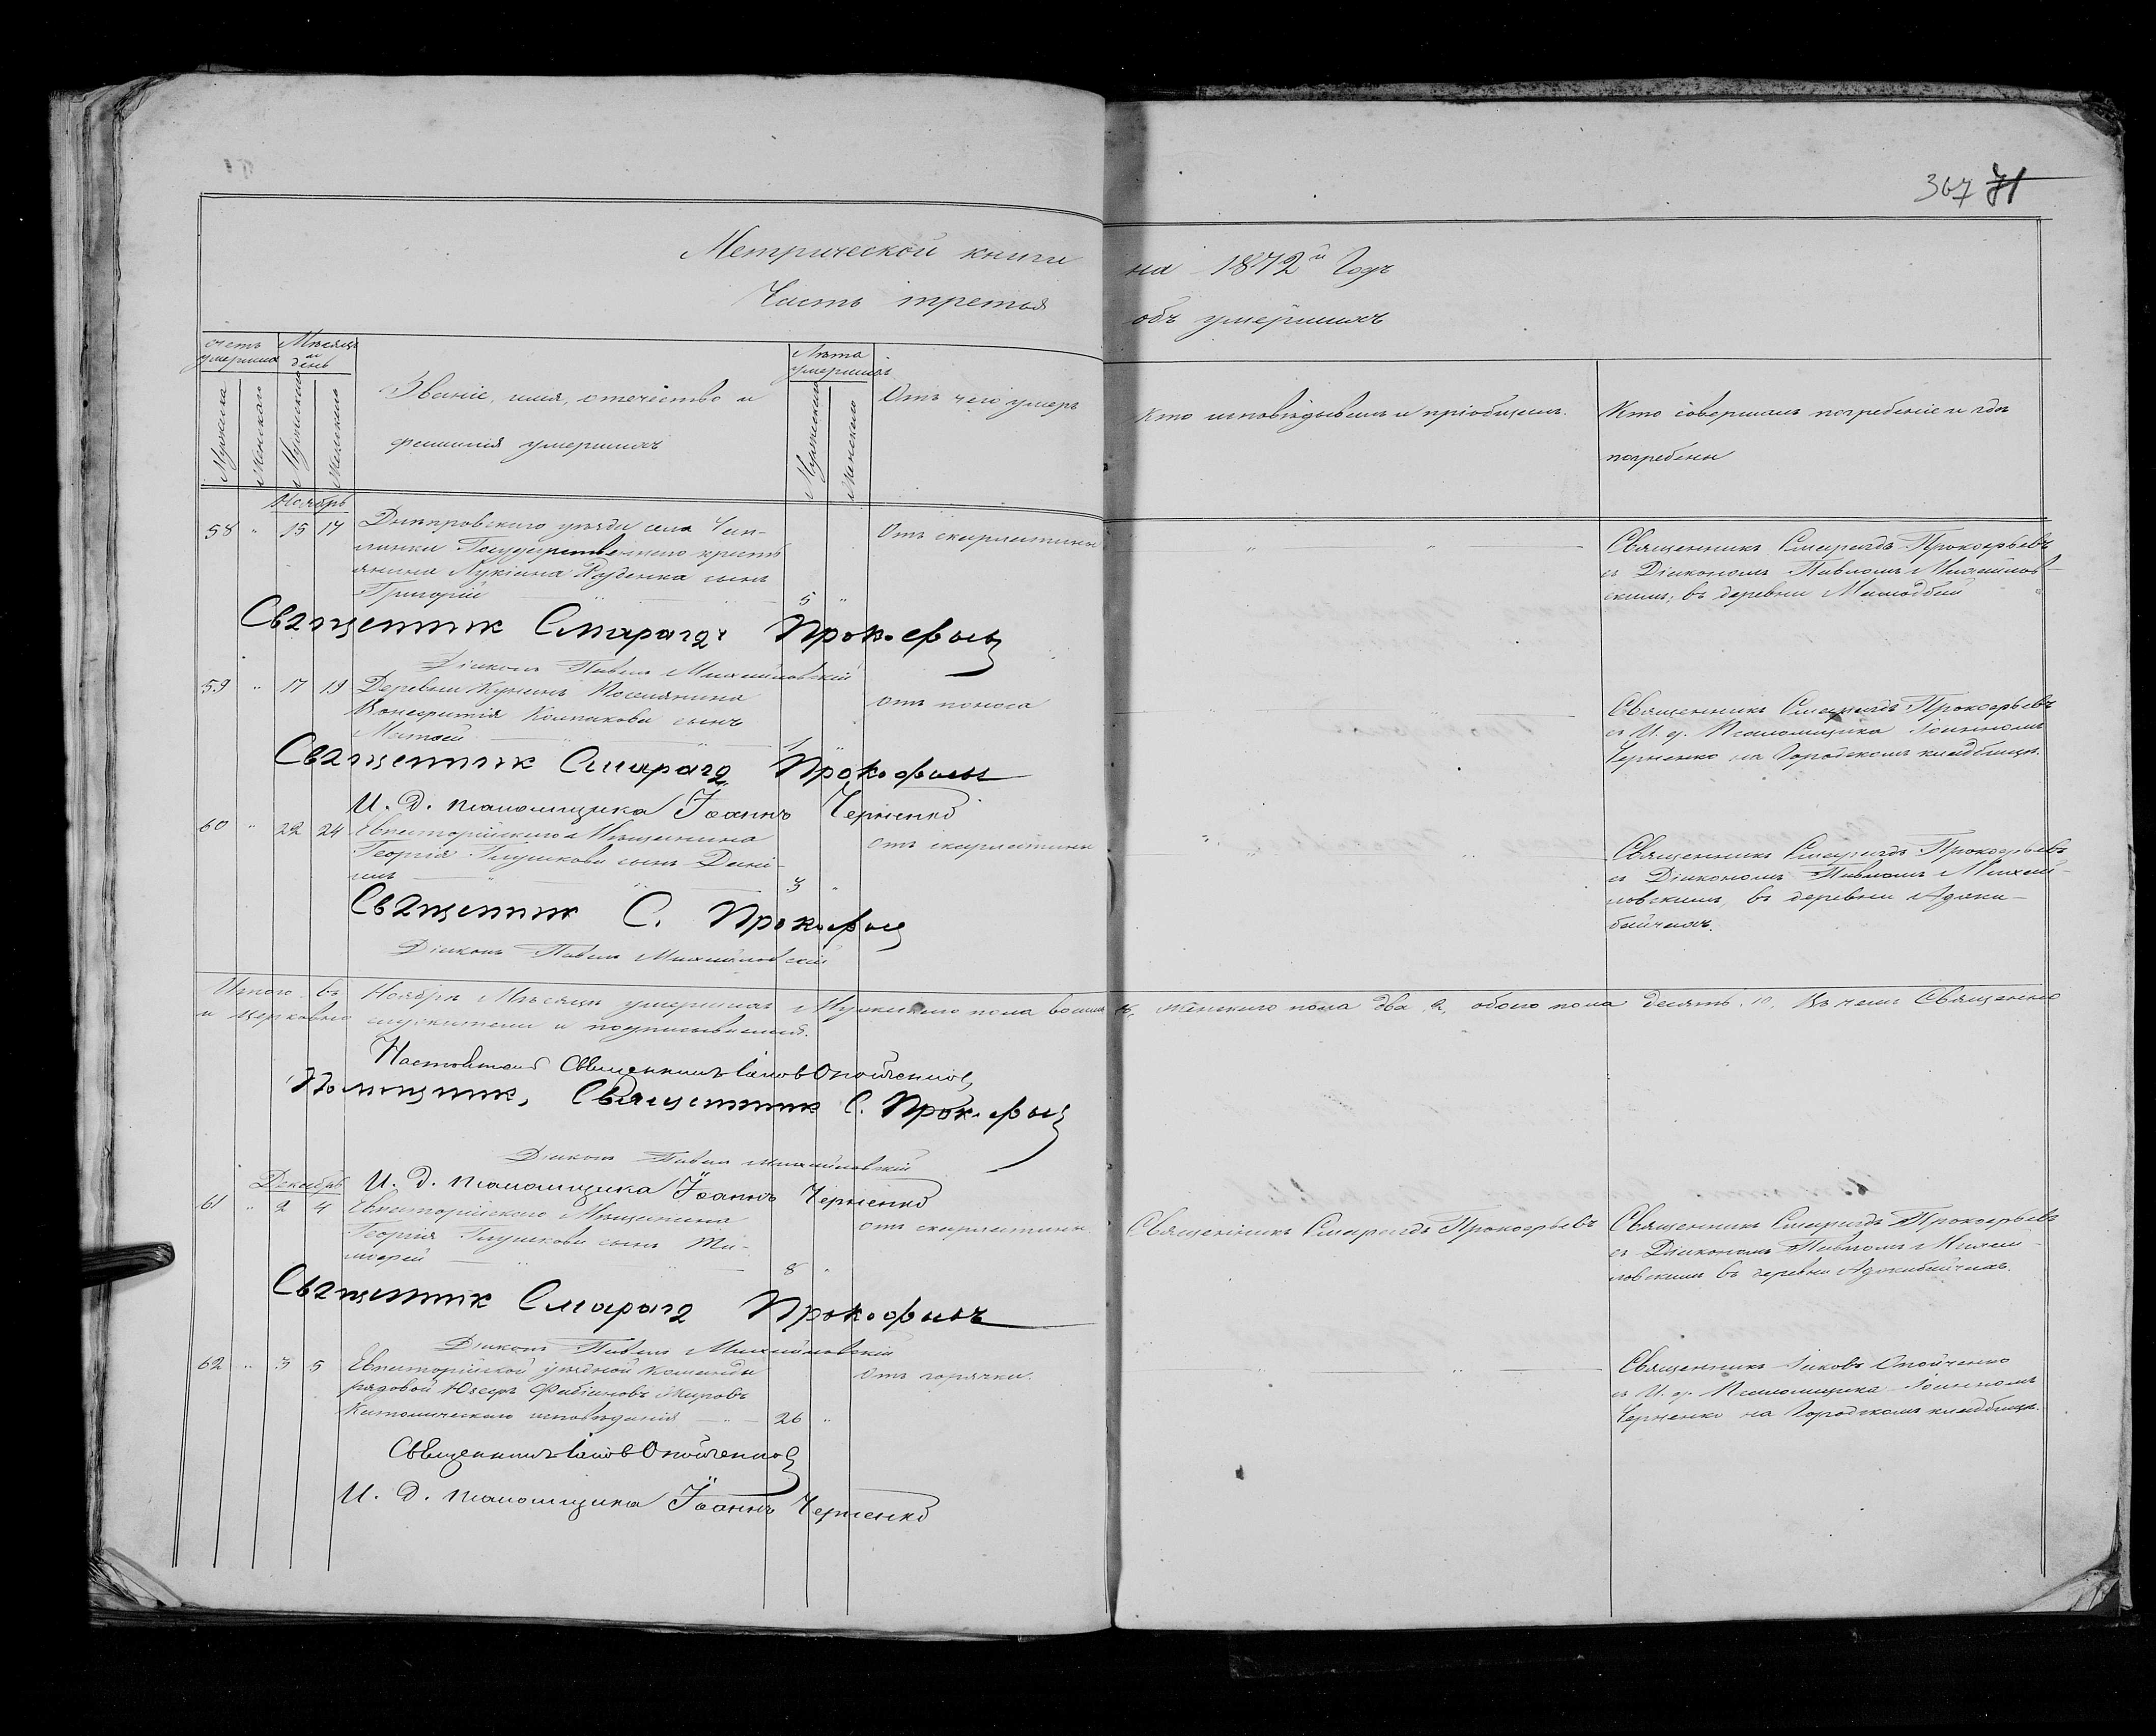 367 71
Метрической книги на 1872й Годъ
Часть третья объ умершихъ
Счетъ умершихъ
Мѣсяцъ и день
Званіе, имя, отчество и фамилія умершихъ
Лѣта умершихъ
Отъ чего умеръ
Кто исповѣдывалъ и пріобщалъ.
Кто совершалъ погребеніе и гдѣ погребены
Мужеска
Женскаго
Мужескаго
Женскаго
Мужескаго
Женскаго
Ноябрь
58 " 15 17 Днѣпровскаго уѣзда села Чап-
линки Государственнаго кресть
янина Лукіана сынъ
Григорій 5 "
Отъ скарлатины
Священникъ Смарагдъ Прокофьевъ
съ Діакономъ Павломъ Михайлов-
скимъ, въ деревни
Священник Смарагдъ Прокофьев
Діаконъ Павелъ Михайловскій
59 " 17 19 Деревни Поселянина
Колпакова сынъ
Матвей 1 "
отъ поноса
Священникъ Смарагдъ Прокофьевъ
съ И. д. Псаломщика Іоанномъ
Черненко на Городскомъ кладбищѣ.
Священник Смарагд Прокофьев
И. д. псаломщика Іоаннъ Черненко
60 " 22 24 Евпаторійскаго Мѣщанина
Георгія Глушкова сынъ Дані-
илъ 3 "
отъ скарлатины
Священникъ Смарагдъ Прокофьевъ
съ Діакономъ Павломъ Михай-
ловскимъ, въ деревни Аджи-
байчахъ.
Священник С. Прокофьев
Діаконъ Павелъ Михайловскій
Итого въ Ноябрѣ Мѣсяцѣ умершихъ Мужескаго пола восемь 8, женскаго пола два 2, обоего пола десять 10, Въ чемъ Священно
и церковно служители и подписываемся.
Настоятель Священникъ Іаков Опойченко
Помощник, Священник С. Прокофьев
Діаконъ Павелъ Михайловскій
И. д. псаломщика Іоаннъ Черненко
Декабрь
61 " 2 4 Евпаторійскаго Мѣщанина
Георгія Глушкова сынъ Ти-
мофей 8 "
отъ скарлатины
Священникъ Смарагдъ Прокофьевъ
Священникъ Смарагдъ Прокофьевъ
съ Діакономъ Павломъ Михай-
ловскимъ въ деревни Аджибайчахъ.
Священник Смарагд Прокофьевъ
Діаконъ Павелъ Михайловскій
62 " 3 5 Евпаторійской уѣздной Команды
рядовой Юзефъ Фабіановъ
Католическаго исповѣданія 26 "
отъ горячки.
Священникъ Іаковъ Опойченко
съ И. д. Псаломщика Іоанномъ
Черненко на Городскомъ кладбищѣ.
Священникъ Іаков Опойченко
И. д. псаломщика Іоаннъ Черненко